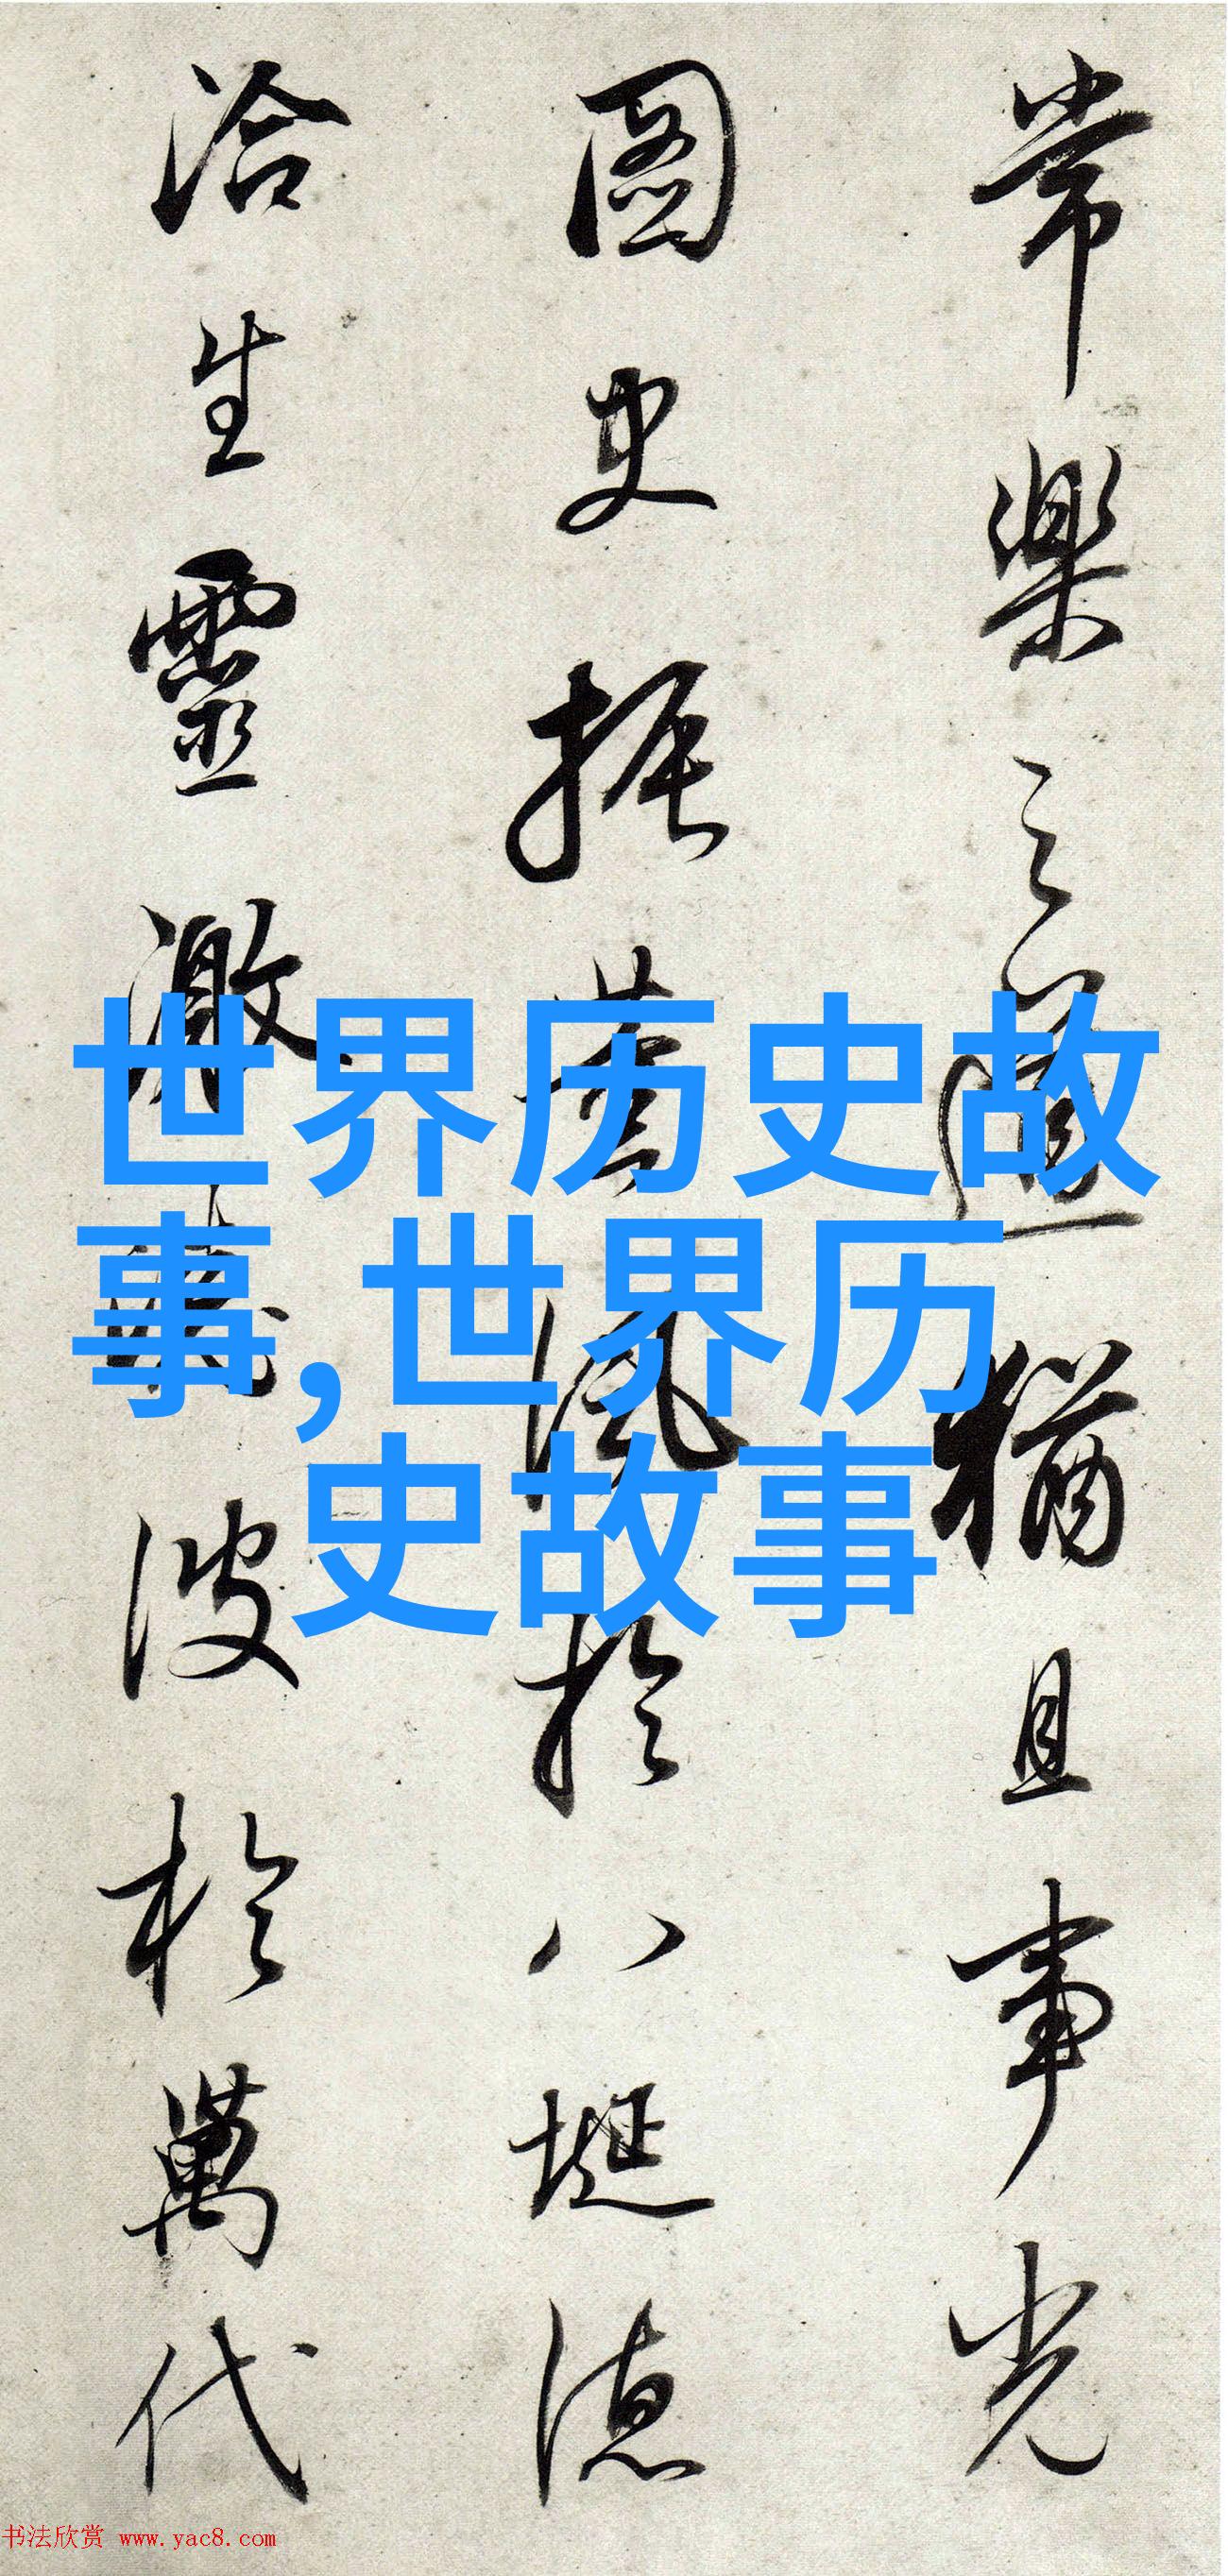 常樂之道猶且事光
圖史振薰風於八埏德
洽生靈激
波於萬代
世界历史故
事,世界历
史故事
书法欣赏 www.yac8.com